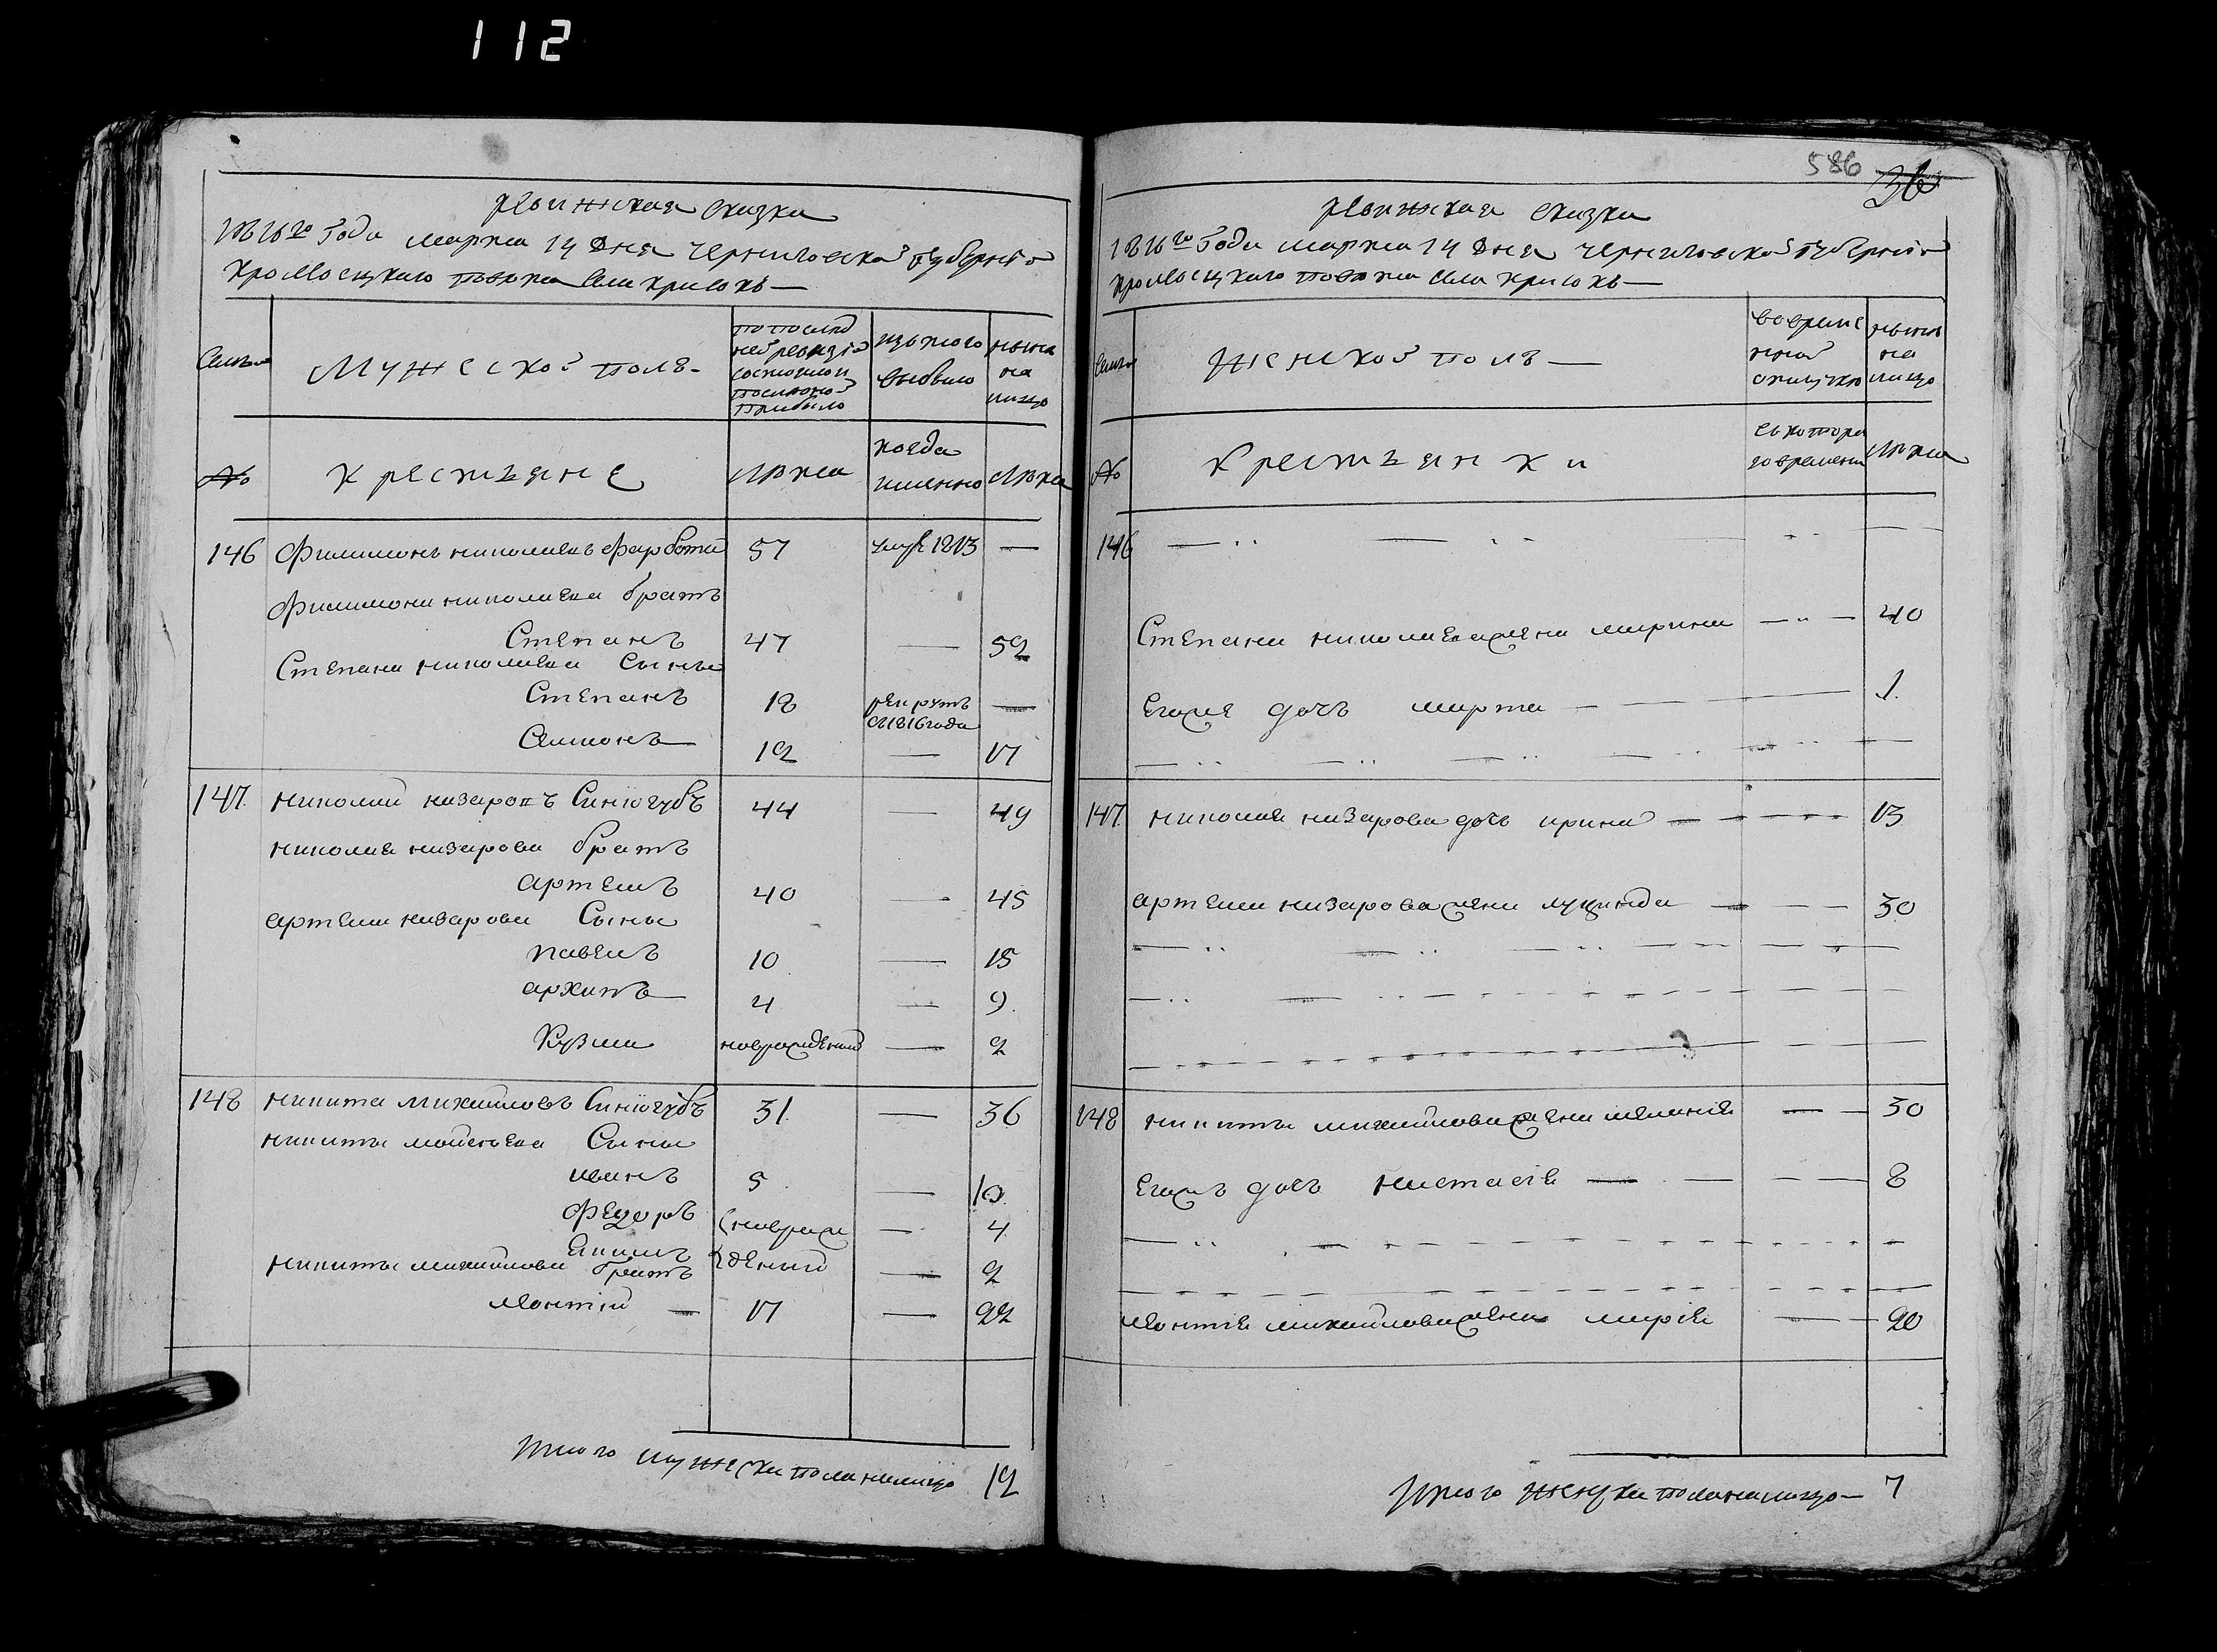 112
ревижская сказка
1816го Года марта 14 Дня Черниговской губернїи
кролевецкаго повета села криокъ
Семьи
Мужеской полъ
по последней ревизїи состояло и после оной прибыло
изъ того выбыло
ныне на лицо
№
Крестьяне
лета
когда именно
лета
146 Филимонъ николаевъ 57 умре 1813 —
Филимона николаева братъ
Степанъ 47 — 52
Степана николаева Сыны
Степанъ 18 рекрутъ —
1816 года
Самонъ 12 — 17
147 николай назаровъ Синюгубъ 44 — 49
николая назарова братъ
артемъ 40 - 45
артема назарова Сыны
павелъ 10 — 15
архипъ 4 — 9
Кузма новрожденный — 2
148 никита михайловъ Синюгубъ 31 — 36
никиты Сыны
иванъ 5 — 10
Федоръ (новрож — 4
Якимъ
никиты михайлова братъ денный — 2
леонтій — 17 — 22
Итого мужеска пола налицо 12
586 36
ревижская сказка
1816го Года марта 14 Дня Черниговской губернїи
кролевецкаго повета села криокъ
Семьи
Женской полъ
во временной отлучке
ныне на лицо
№
Крестьянки
съ которого времени
лета
146
Степана николаева жена марина — 40
Егоже дочь марта — 1
147 николая назарова дочь ирина — 13
артема назарова жена — 30
148 никиты михайлова жена меланія — 30
Егожъ дочь настасія — 8
леонтія михайлова жена марія — 20
Итого женска пола налицо — 7